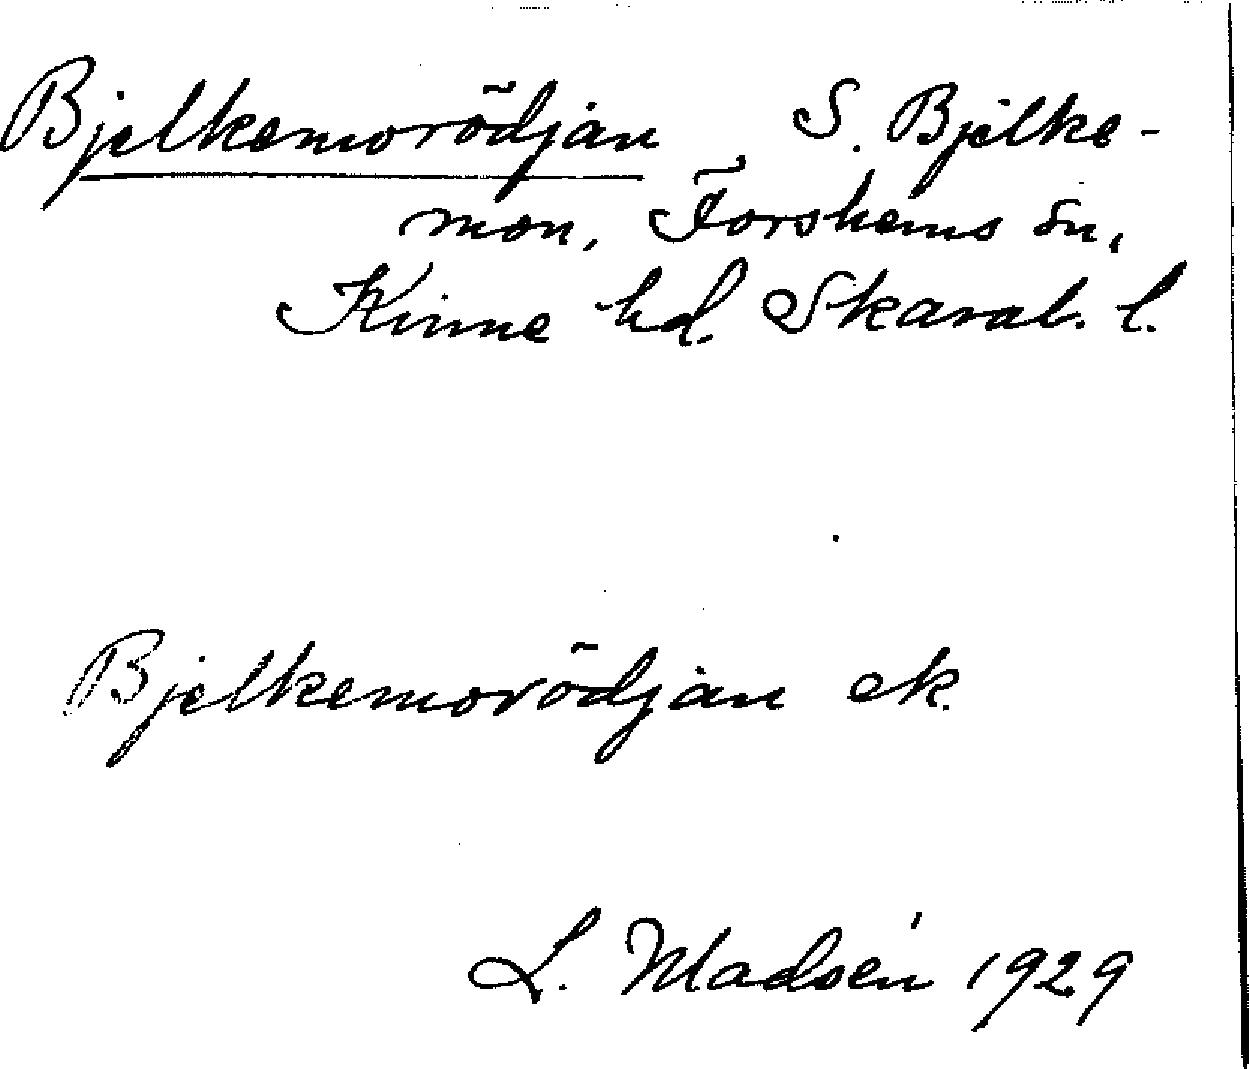 Bjelkemorödjan S. Bjelke-
mon, Forshems sn,
Kinne hd. Skarab. l.
Bjelkemorödjan ek.
L. Madsén 1929